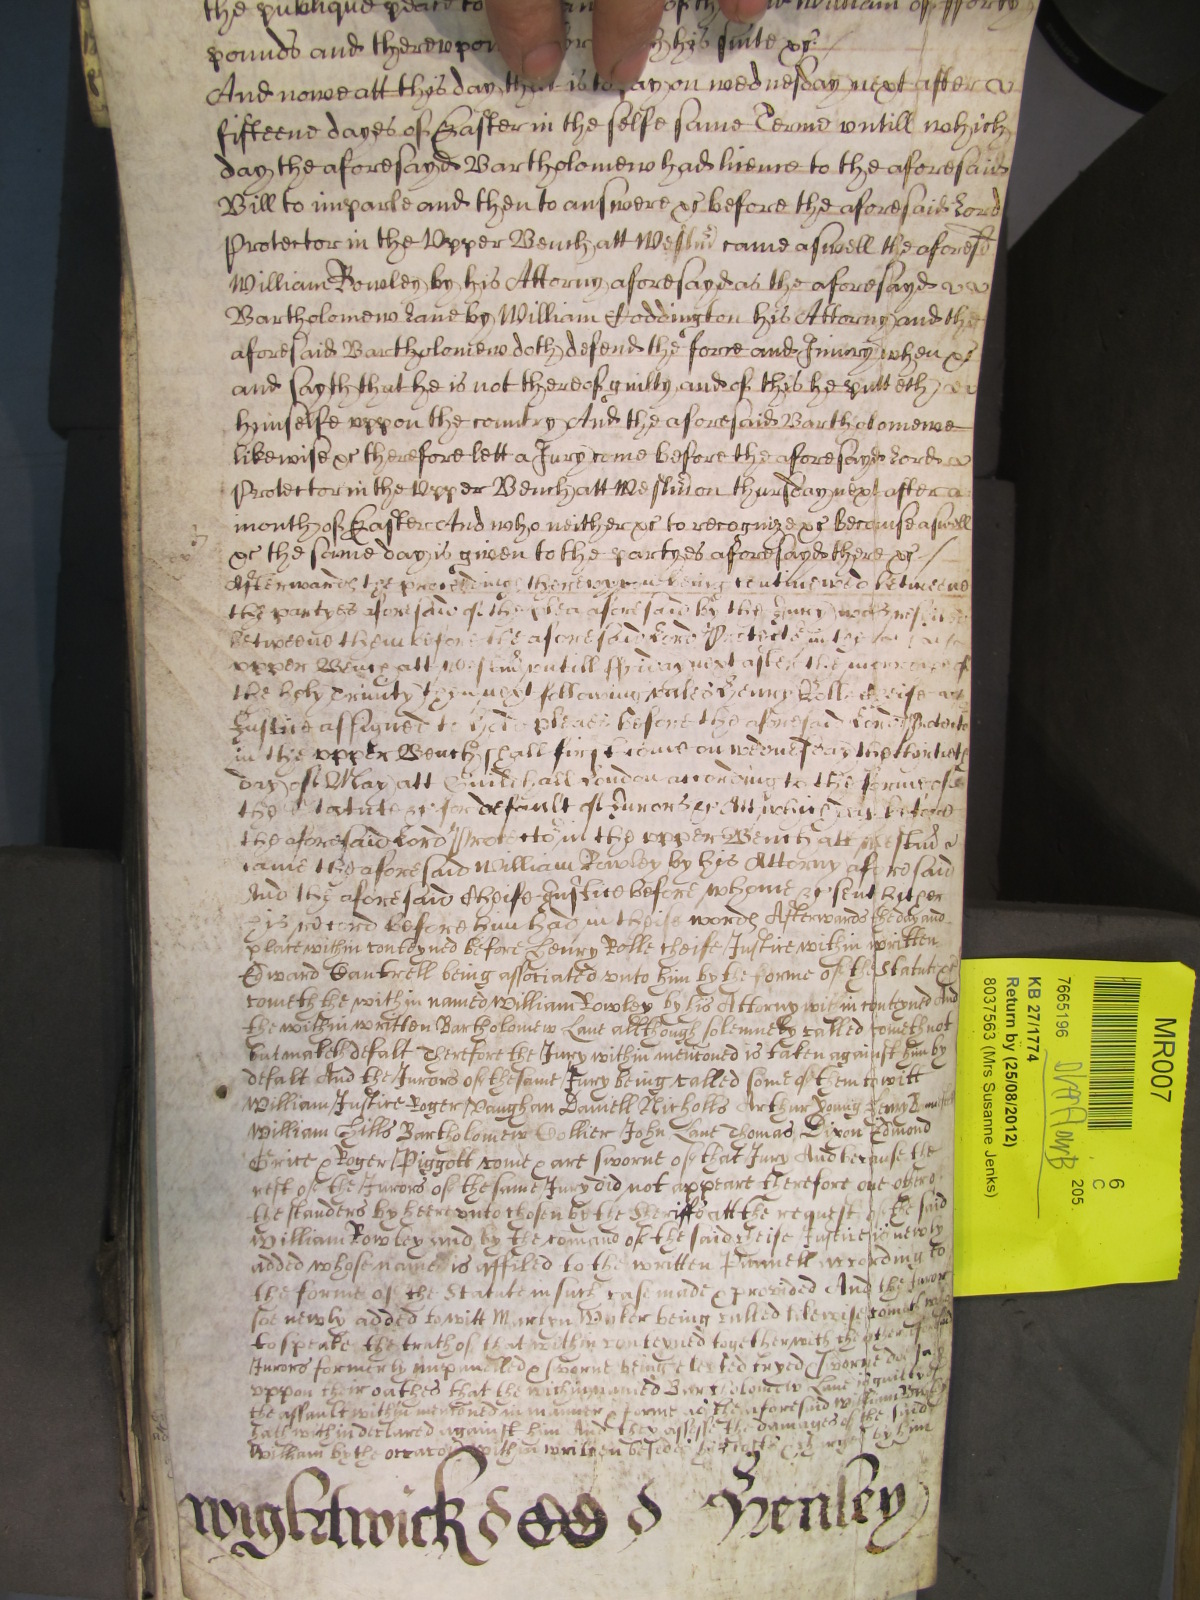 the publique peace to of the William of fforty
pounds and thereupon his suite &c
And nowe att this day that is to say on wednesday next after
fifteene dayes of Easter in the selfe same Terme untill which
day the aforesayd Bartholomew had licence to the aforesaid
Bill to imparle and then to answere &c before the aforesaid Lord
Protector in the Upper Bench att Westmr came aswell the aforesd
William Rowley by his Attorny aforesayd as the aforesayd
Bartholomew Lane by William Coddington his Attorny and the
aforesaid Bartholomew doth defend the force and Iniury when &c
and sayth that he is not thereof guilty and of this he putteth
himselfe uppon the country And the aforesaid Bartholomewe
likewise &c therefore lett a Jury come before the aforesayd Lord
Protector in the Upper Bench att Westmr on thursday next after a
month of Easter And who neither &c to recognize &c Because aswell
&c the same day is given to the partyes aforesayd there &c
Afterwards the proceedings thereuppon being continewed betweene
the partyes aforesaid of the plea aforesaid by the Jury
betweene them before the aforesaid Lord Protector in the
upper Bench att Westmr untill ffryday next after the morrowe of
the holy Trinity then next following unles Henry Rolle Cheife
Justice assigned to hold pleas before the aforesaid Lord Protector
in the upper Bench shall first come on wednesday the
day of May att Guildhall London according to the forme of
the Statute &c for default of Jurors &c Att which day before
the aforesaid Lord Protector in the upper Bench att Westmr
came the aforesaid William Rowley by his Attorny aforesaid
And the aforesaid Cheife Justice before whome &c sent hither
his record before him had in theise words Afterwards the day and
place within conteyned before Henry Rolle cheife Justice within written
Edward Cantrell being associated unto him by the forme of the Statute &c
cometh the within named William Rowley by his Attorny within conteyned And
the within written Bartholomew Lane allthough solemnely called cometh not
but maketh defalt Therefore the Jury within mencioned is taken against him by
defalt And the Jurors of the same Jury being called some of them to witt
William Justice Roger Vaughan Daniell Nicholls Arthur Young Henry
William Hills Bartholomew Collier John Lane Thomas Dixon Edmond
Grice & Roger Piggott come & are sworne of that Jury And because the
rest of the Jurors of the same Jury did not appeare therefore one other of
the standers by heereunto chosen by the Sheriffs att the request of the said
William Rowley and by the comand of the said Cheife Justice is newly
added whose name is affiled to the written Pannell according to
the forme of the Statute in such case made & provided And the Juror
soe newly added to witt Martyn being called likewise cometh who
to speake the trath of that within conteyned together with the other aforesaid
Jurors formerly impanelled & sworne being elected tryed & sworne doe say
uppon their oathes that the within named Bartholomew Lane is guilty of
the assault within mencioned in manner & forme as the aforesaid William Rowley
hath within declared against him And they assesse the damages of the said
William by the occacion within written besides his Costs & charges by him
Wightwick Henley
MR007
6
C
205.
7665196
KB 27/1774
Return by (25/08/2012)
8037563 (Mrs Susanne Jenks)